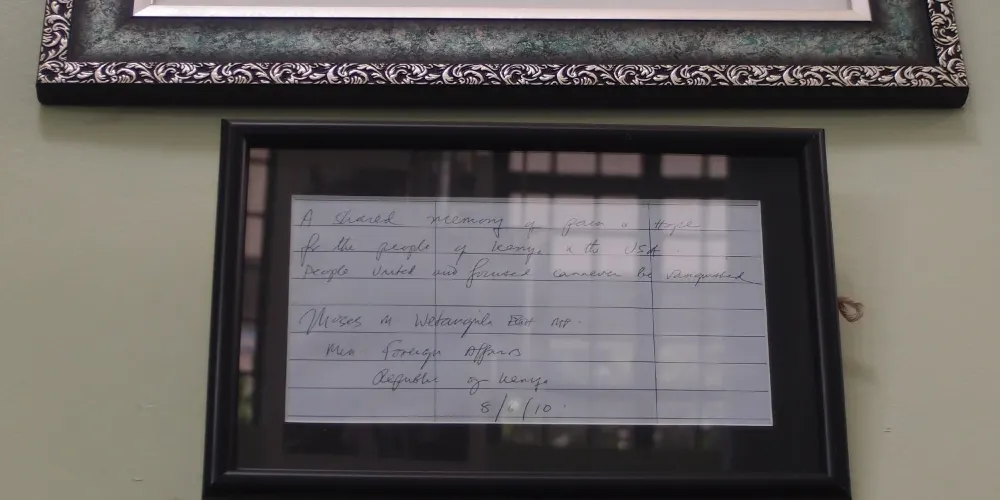 A shared memory of pain & Hope
for the people of Kenya & the USA
People United and focused cannever be vanquished
Moses M Wetangula EGH MP.
Min Foreign Affairs
Republic of Kenya
8/6/10.